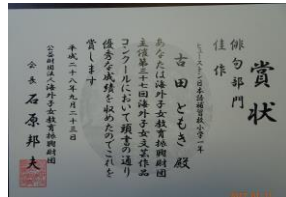 賞状
俳句部門
佳作
ヒューストン日本語補習校小学一年
吉田ともき殿
あなたは海外子女教育振興財団
主催第三十七回海外子女文芸作品
コンクールにおいて頭書の通り
優秀な成績を収めたのでこれを
賞します
平成二十八年九月二十三日
公益財団法人海外子女教育振興財団
会長 石原邦夫